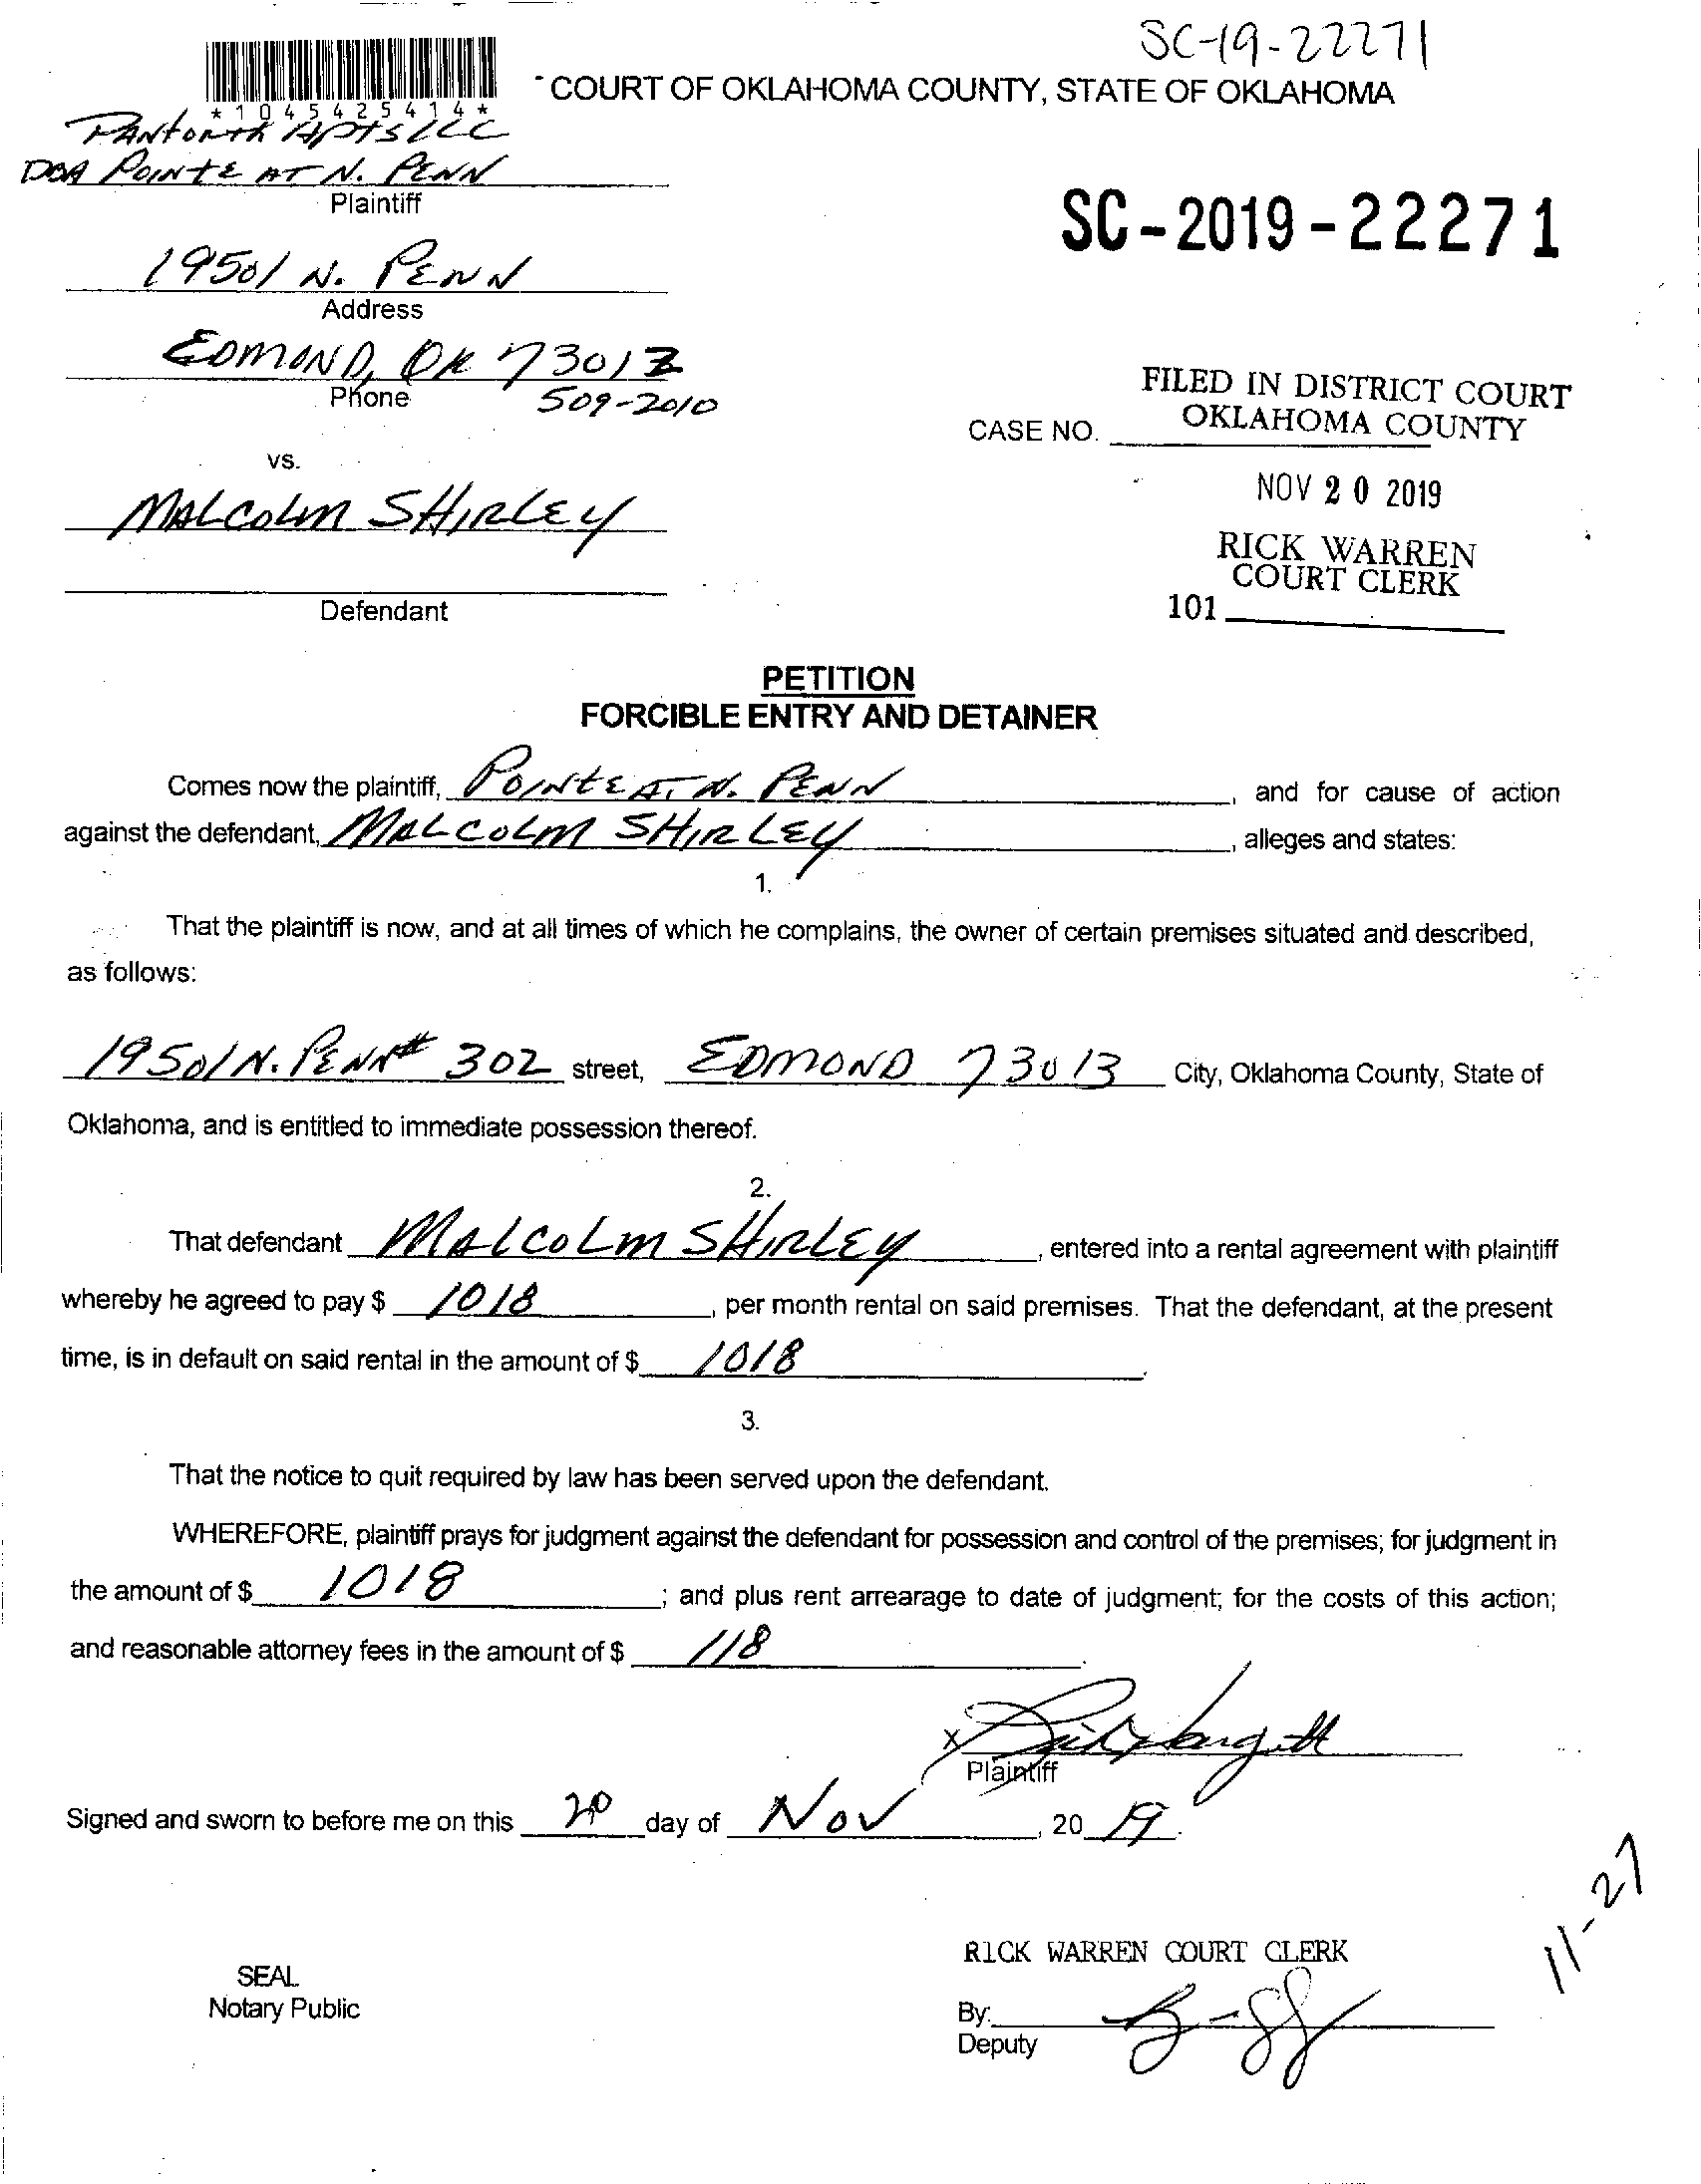 SC-19-22271
*1045425414*
COURT OF OKLAHOMA COUNTY, STATE OF OKLAHOMA
APTS LLC
DBA POINTE AT N. PENN
Plaintiff
SC-2019-22271
19501 N. PENN
Address
EDMOND, OK 73013
Phone
509-2010
FILED IN DISTRICT COURT
OKLAHOMA COUNTY
CASE NO.
vs.
NOV 20 2019
MALCOLM SHIRLEY
RICK WARREN
COURT CLERK
Defendant
101
PETITION
FORCIBLE ENTRY AND DETAINER
Comes now the plaintiff, POINTE AT N. PENN, and for cause of action
against the defendant, MALCOLM SHIRLEY, alleges and states:
1.
That the plaintiff is now, and at all times of which he complains, the owner of certain premises situated and described,
as follows:
19501 N. PENN # 302 street, EDMOND 73013 City, Oklahoma County, State of
Oklahoma, and is entitled to immediate possession thereof.
2.
That defendant MALCOLM SHIRLEY, entered into a rental agreement with plaintiff
whereby he agreed to pay $ 1018, per month rental on said premises. That the defendant, at the present
time, is in default on said rental in the amount of $ 1018.
3.
That the notice to quit required by law has been served upon the defendant.
WHEREFORE, plaintiff prays for judgment against the defendant for possession and control of the premises; for judgment in
the amount of $ 1018; and plus rent arrearage to date of judgment; for the costs of this action;
and reasonable attorney fees in the amount of $ 118.
X
Plaintiff
Signed and sworn to before me on this 20 day of Nov, 20 19.
11-27
RICK WARREN COURT CLERK
SEAL
Notary Public
By:
Deputy